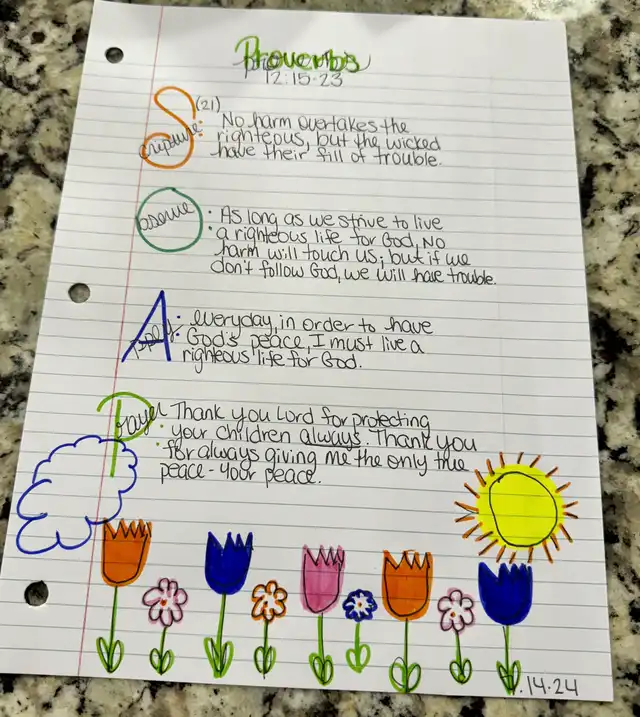 Proverbs
12:15-23
Scripture: (21) No harm overtakes the
righteous, but the wicked
have their fill of trouble.
Observe: As long as we strive to live
a righteous life for God, No
harm will touch us, but if we
don't follow God, we will have trouble.
Apply: everyday, in order to have
God's peace, I must live a
righteous life for God.
Prayer: Thank you Lord for protecting
your children always. Thank you
for always giving me the only true
peace - your peace.
.14.24